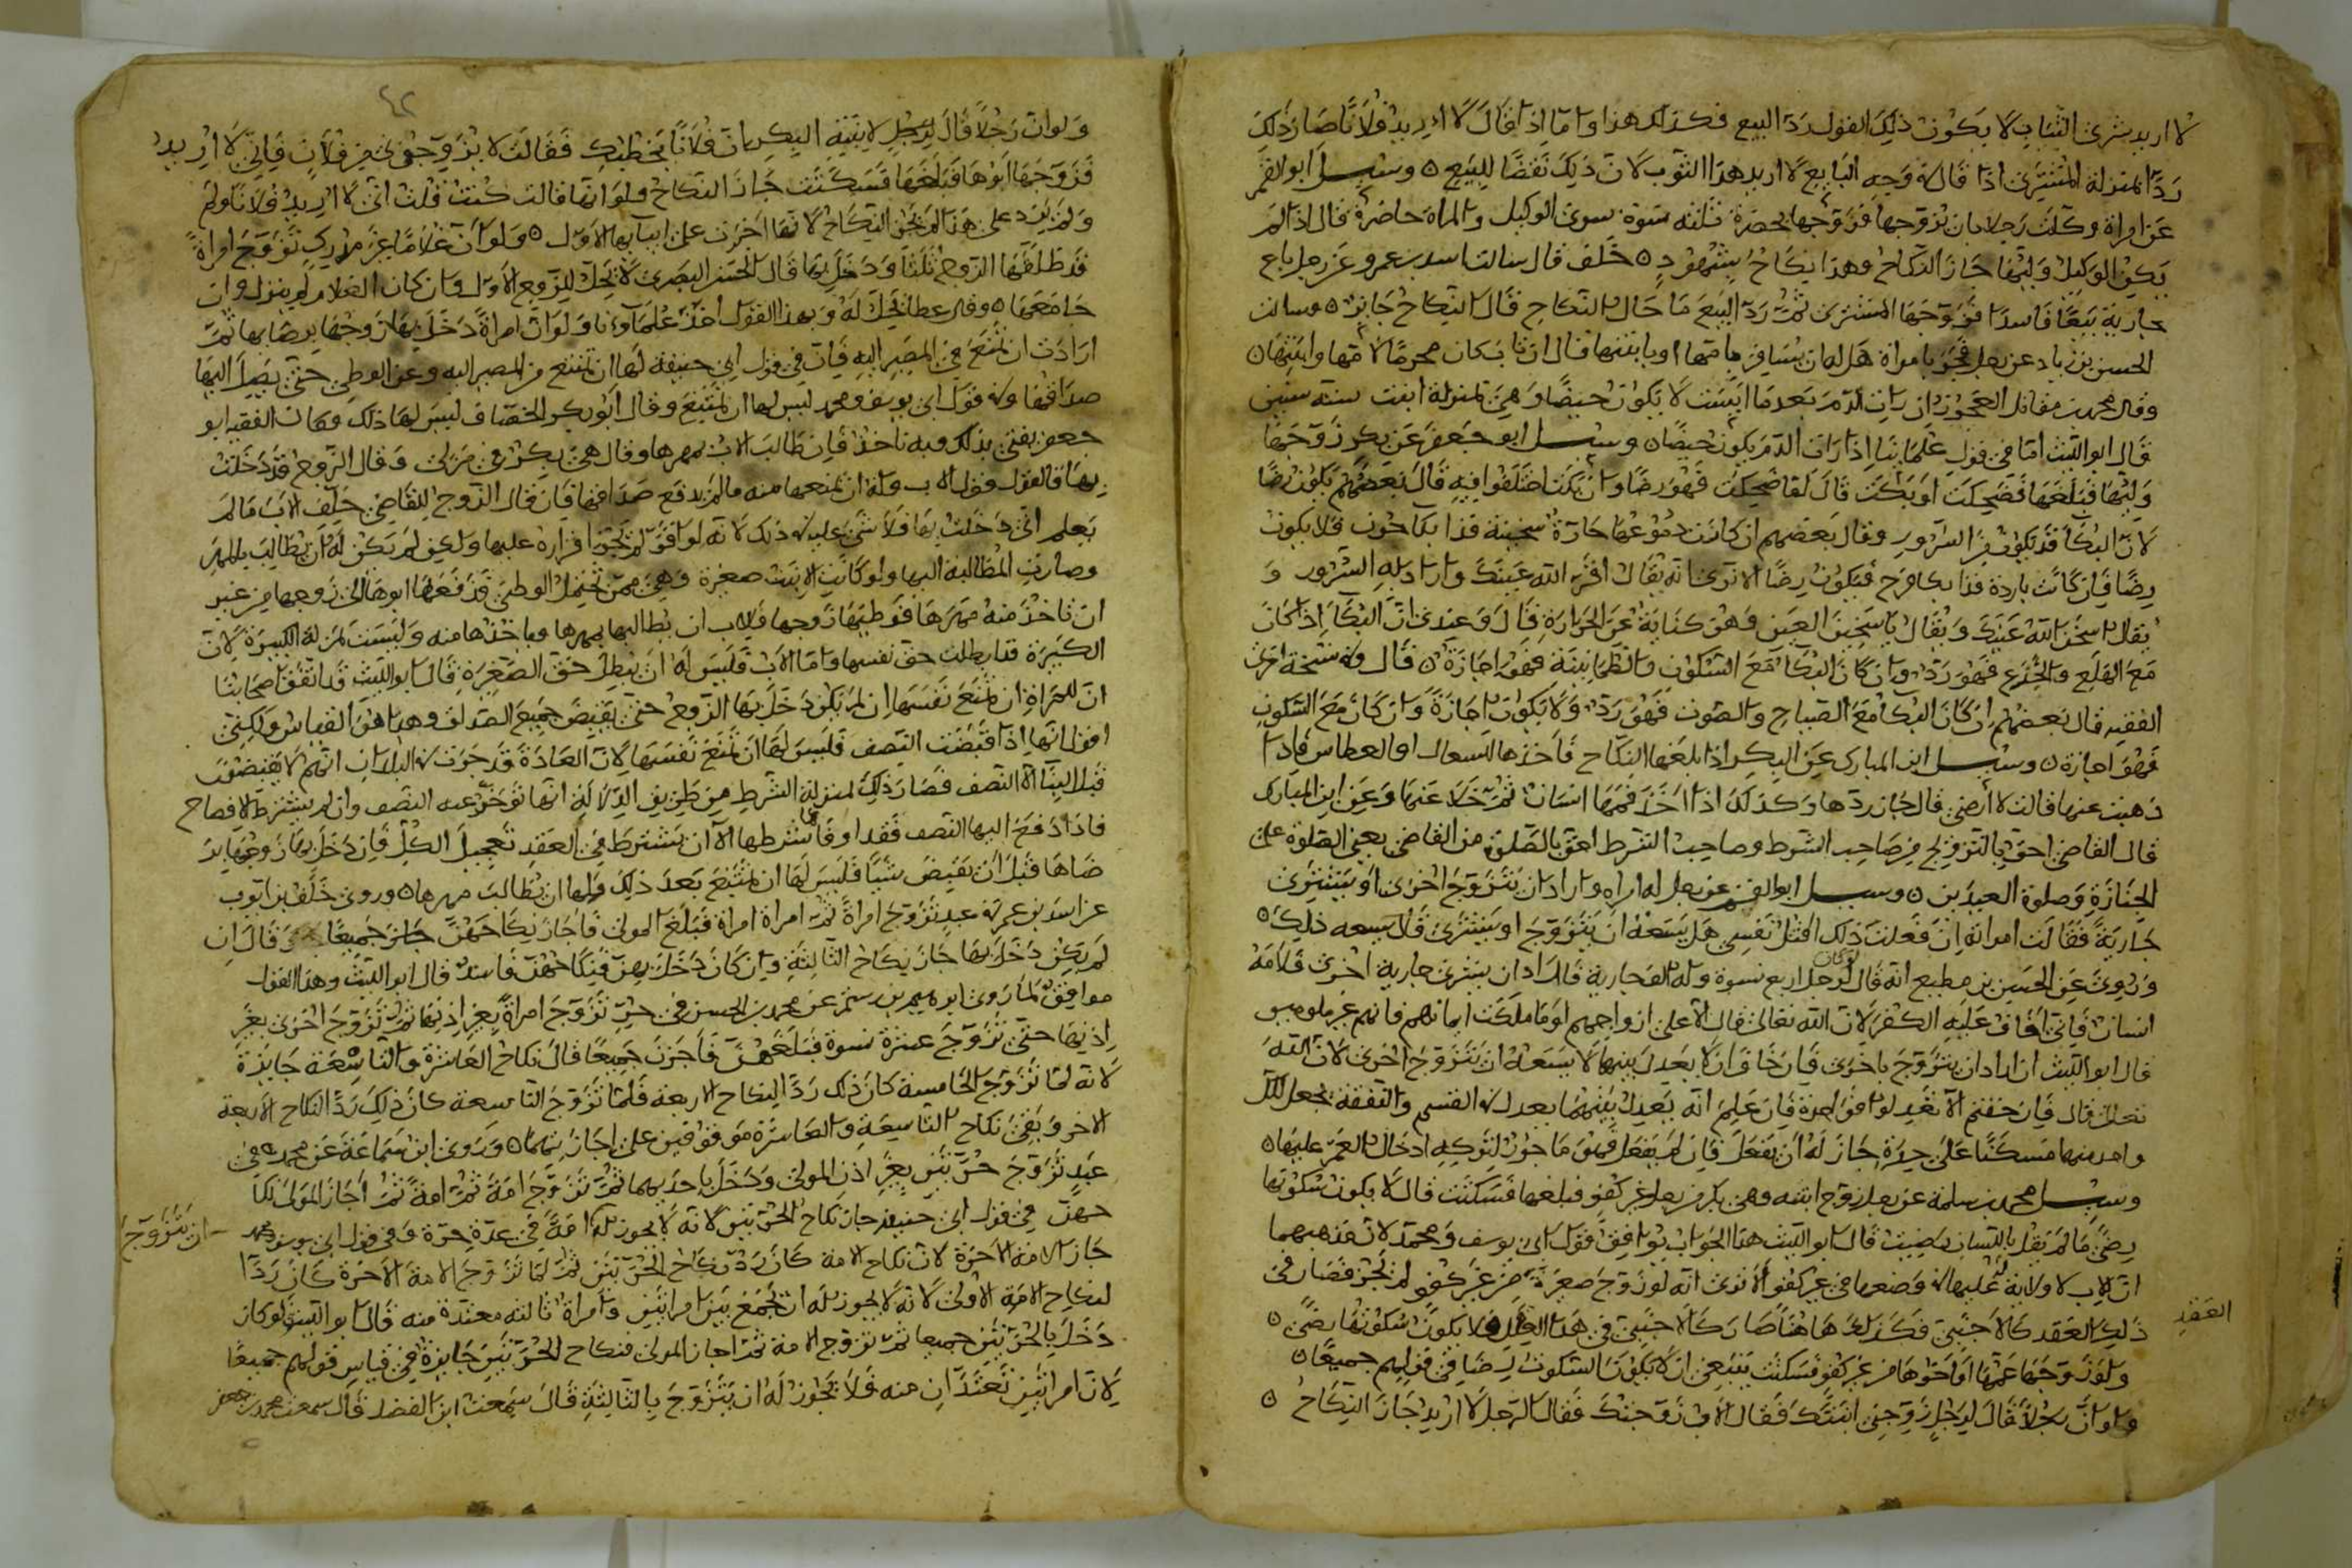 لا اريد شرى الثياب لا يكون ذلك القول رد البيع فكذلك هذا واما اذا قال لا اريد فلانا صار ذلك
ردا بمنزلة المشترى اذا قال في وجه البايع لا اريد هذا الثوب لان ذلك نقضا للبيع ٥ وسئل ابو القسم
عن امراة وكلت رجلا بان يزوجها فزوجها بحضرة ثلثة نسوة سوى الوكيل والمراة حاضرة قال اذا لم
يكن الوكيل وليها جاز النكاح وهذا نكاح بشهود ٥ خلف قال سالت اسد بن عمرو عن رجل باع
جارية بيعا فاسدا فزوجها المشترى ثم رد البيع ما حال النكاح قال النكاح جايز ٥ وسالت
الحسن بن زياد عن رجل فجر بامراة هل له ان يسافر بامها او بابنتها قال ان تاب كان محرما لامها وابنتها ٥
وقال محمد بن مقاتل العجوز ان رات الدم بعدما ايست لا يكون حيضا وهي بمنزلة ابنت ستة سنين
قال ابو الليث اما في قول علمائنا اذا رات الدم يكون حيضا ٥ وسئل ابو جعفر عن بكر زوجها
وليها فبلغها فضحكت او بكت قال لو ضحكت فهو رضا وان بكت اختلفوا فيه قال بعضهم يكون رضا
لان البكا قد يكون من السرور وقال بعضهم ان كانت دموعها حارة سخينة فذا بكا حزن فلا يكون
رضا فان كانت باردة فذا بكا فرح فيكون رضا الا ترى انه يقال اقر الله عينك وارادبه السرور و
يقال اسخن الله عينك ويقال يا سخين العين وهو كناية عن الحرارة قال وعندى ان البكا اذا كان
مع الهلع والجزع فهو رد وان كان البكا مع السكون والطمانينة فهو اجازة ٥ قال وفي نسخة اخرى
الفقيه قال بعضهم ان كان البكا مع الصياح والصوت فهو رد ولا يكون اجازة وان كان مع السكون
فهو اجازة ٥ وسئل ابن المبارك عن البكر اذا بلغها النكاح فاخذها السعال او العطاس فاذا
ذهبت عنها قالت لا ارضى قال جاز ردها وكذلك اذا اخذ فمها انسان ثم خلا عنها وعن ابن المبارك
قال القاضى احق بالتزويج من صاحب الشرط وصاحب الشرط احق بالصلوة من القاضى يعنى الصلوة على
الجنازة وصلوة العيدين ٥ وسئل ابو القسم عن رجل له امراة واراد ان يتزوج اخرى او يشترى
جارية فقالت امراته ان فعلت ذلك اقتل نفسى هل يسعه ان يتزوج او يشترى قال يسعه ذلك ٥
وروى عن الحسن بن مطيع انه قال لو كان لرجل اربع نسوة وله الف جارية قال اراد ان يشترى جارية اخرى فلامه
انسان فانى اخاف عليه الكفر لان الله تعالى قال الا على ازواجهم او ما ملكت ايمانهم فانهم غير ملومين
قال ابو الليث ان اراد ان يتزوج باخرى فان خاف ان لا يعدل بينهما لا يسعه ان يتزوج اخرى لان الله
تعالى قال فان خفتم الا تعدلوا فواحدة فان علم انه يعدل بينهما يعدل في القسم والنفقة يجعل لكل
واحد منهما مسكنا على حدة جاز له ان يفعل فان لم يفعل فهو ماجور لتركه ادخال الغم عليها ٥
وسئل محمد بن سلمة عن رجل زوج ابنته وهى بكر من رجل غير كفو فبلغها فسكتت قال لا يكون سكوتها
رضى ما لم تقل باللسان رضيت قال ابو الليث هذا الجواب يوافق قول ابى يوسف ومحمد لان مذهبهما
ان الاب لا ولاية له عليها في وضعها في غير كفو الا ترى انه لو زوج صغيرة من غير كفو لم يجز فصار فى
ذلك العقد كالاجنبى فكذلك هاهنا صار كالاجنبى فى هذا العقد فلا يكون سكوتها رضى ٥
العقد
ولو زوجها عمها او اخوها من غير كفو فسكتت ينبغى ان لا يكون السكوت رضا فى قولهم جميعا ٥
ولو ان رجلا قال لرجل زوجنى ابنتك فقال الاب زوجتك فقال الرجل لا اريد جاز النكاح ٥
٤٢
ولو ان رجلا قال لرجل لابنته البكر ان فلانا يخطبك فقالت لا تزوجنى من فلان فانى لا اريد
فزوجها ابوها فبلغها فسكتت جاز النكاح ولو انها قالت كنت قلت انى لا اريد فلانا ولم
ولم يزد على هذا لم يجز النكاح لانها اخبرت على ابائها الاول ٥ ولو ان غلاما غير مدرك تزوج امراة
قد طلقها الزوج ثلثا ودخل بها قال الحسن البصرى لا تحل للزوج الاول وان كان الغلام لم ينزل وان
جامعها ٥ وقال عطا تحل له وبهذا القول اخذ علماؤنا ولو ان امراة دخل بها زوجها برضاها ثم
ارادت ان تمتنع من المصير اليه فان فى قول ابى حنيفة لها ان تمتنع من المصير اليه وعن الوطى حتى يصل اليها
صداقها وفى قول ابى يوسف ومحمد ليس لها ان تمتنع وقال ابو بكر الخصاف ليس لها ذلك وكان الفقيه ابو
جعفر يفتى بذلك وبه ناخذ فان طالب الاب بمهرها وقال هى بكر فى منزلى وقال الزوج قد دخلت
بها فالقول قول الاب وله ان يمنعها منه ما لم يدفع صداقها فان قال الزوج للقاضى حلف الاب ما لم
يعلم انى دخلت بها فلا شى عليه فى ذلك لانه لو اقر لم يجز اقراره عليها ولكن لم يكن له ان يطالب بالمهر
وصارت المطالبة اليها ولو كانت الابنت صغيرة وهى ممن تحتمل الوطى قد دفعها ابوها الى زوجها من غير
ان ياخذ منه مهرها فوطيها زوجها فللاب ان يطالبها بمهرها وياخذها منه وليست بمنزلة الكبيرة لان
الكبيرة قد ابطلت حق نفسها واما الاب فليس له ان يبطل حق الصغيرة قال ابو الليث قد اتفق اصحابنا
ان للمراة ان تمنع نفسها ان لم يكن دخل بها الزوج حتى يقبض جميع الصداق وهذا هو القياس ولكنى
اقول انها اذا قبضت النصف فليس لها ان تمنع نفسها لان العادة قد جرت فى البلدان انهم لا يقبضون
قبل البنا الا النصف فصار ذلك بمنزلة الشرط من طريق الدلالة انها توخر عنه النصف وان لم يشترط الافصاح
فاذا دفع اليها النصف فقد اوفا شرطها الا ان يشترط فى العقد تعجيل الكل فان دخل بها زوجها بر
ضاها قبل ان تقبض شيا فليس لها ان تمتنع بعد ذلك ولها ان تطالب مهرها ٥ وروى خلف بن ايوب
عن اسد بن عمرو فى عبد تزوج امراة ثم امراة امراة فبلغ المولى فاجاز نكاحهن جاز جميعا وقال ان
لم يكن دخل بها جاز نكاح الثالثة وان كان دخل بهن فنكاحهن فاسد قال ابو الليث وهذا القول
موافق لما روى ابرهيم بن رستم عن محمد بن الحسن فى حر تزوج امراة بغير اذنها ثم تزوج اخرى بغير
اذنها حتى تزوج عشرة نسوة فبلغهن فاجزن جميعا قال نكاح العاشرة والتاسعة جايزة
لانه لما تزوج الخامسة كان ذلك ردا لنكاح الاربعة فلما تزوج التاسعة كان ذلك ردا لنكاح الاربعة
الاخر وبقى نكاح التاسعة والعاشرة موقوفين على اجازتهما ٥ وروى ابن سماعة عن محمد فى
عبد تزوج حرتين بغير اذن المولى ودخل باحديهما ثم تزوج امة ثم امة ثم اجاز المولى نكا
حهن فى قول ابى حنيفة جاز نكاح الحرتين لانه لا يجوز له امة فى عدة حرة وفى قول ابى يوسف ومحمد
ان يتزوج
جاز الامة الاخرة لان نكاح الامة كان رد نكاح الحرتين ثم لما تزوج الامة الاخرة كان ردا
لنكاح الامة الاولى لانه لا يجوز له ان يجمع بين امراتين وامراة ثالثة معتدة منه قال ابو الليث ولو كان
دخل بالحرتين جميعا ثم تزوج الامة ثم اجاز المولى فنكاح الحرتين جايزة فى قياس قولهم جميعا
لان امراتين تعتدان منه فلا يجوز له ان يتزوج بالثالثة قال سمعت ابن الفضل قال سمعت محمد بن جعفر